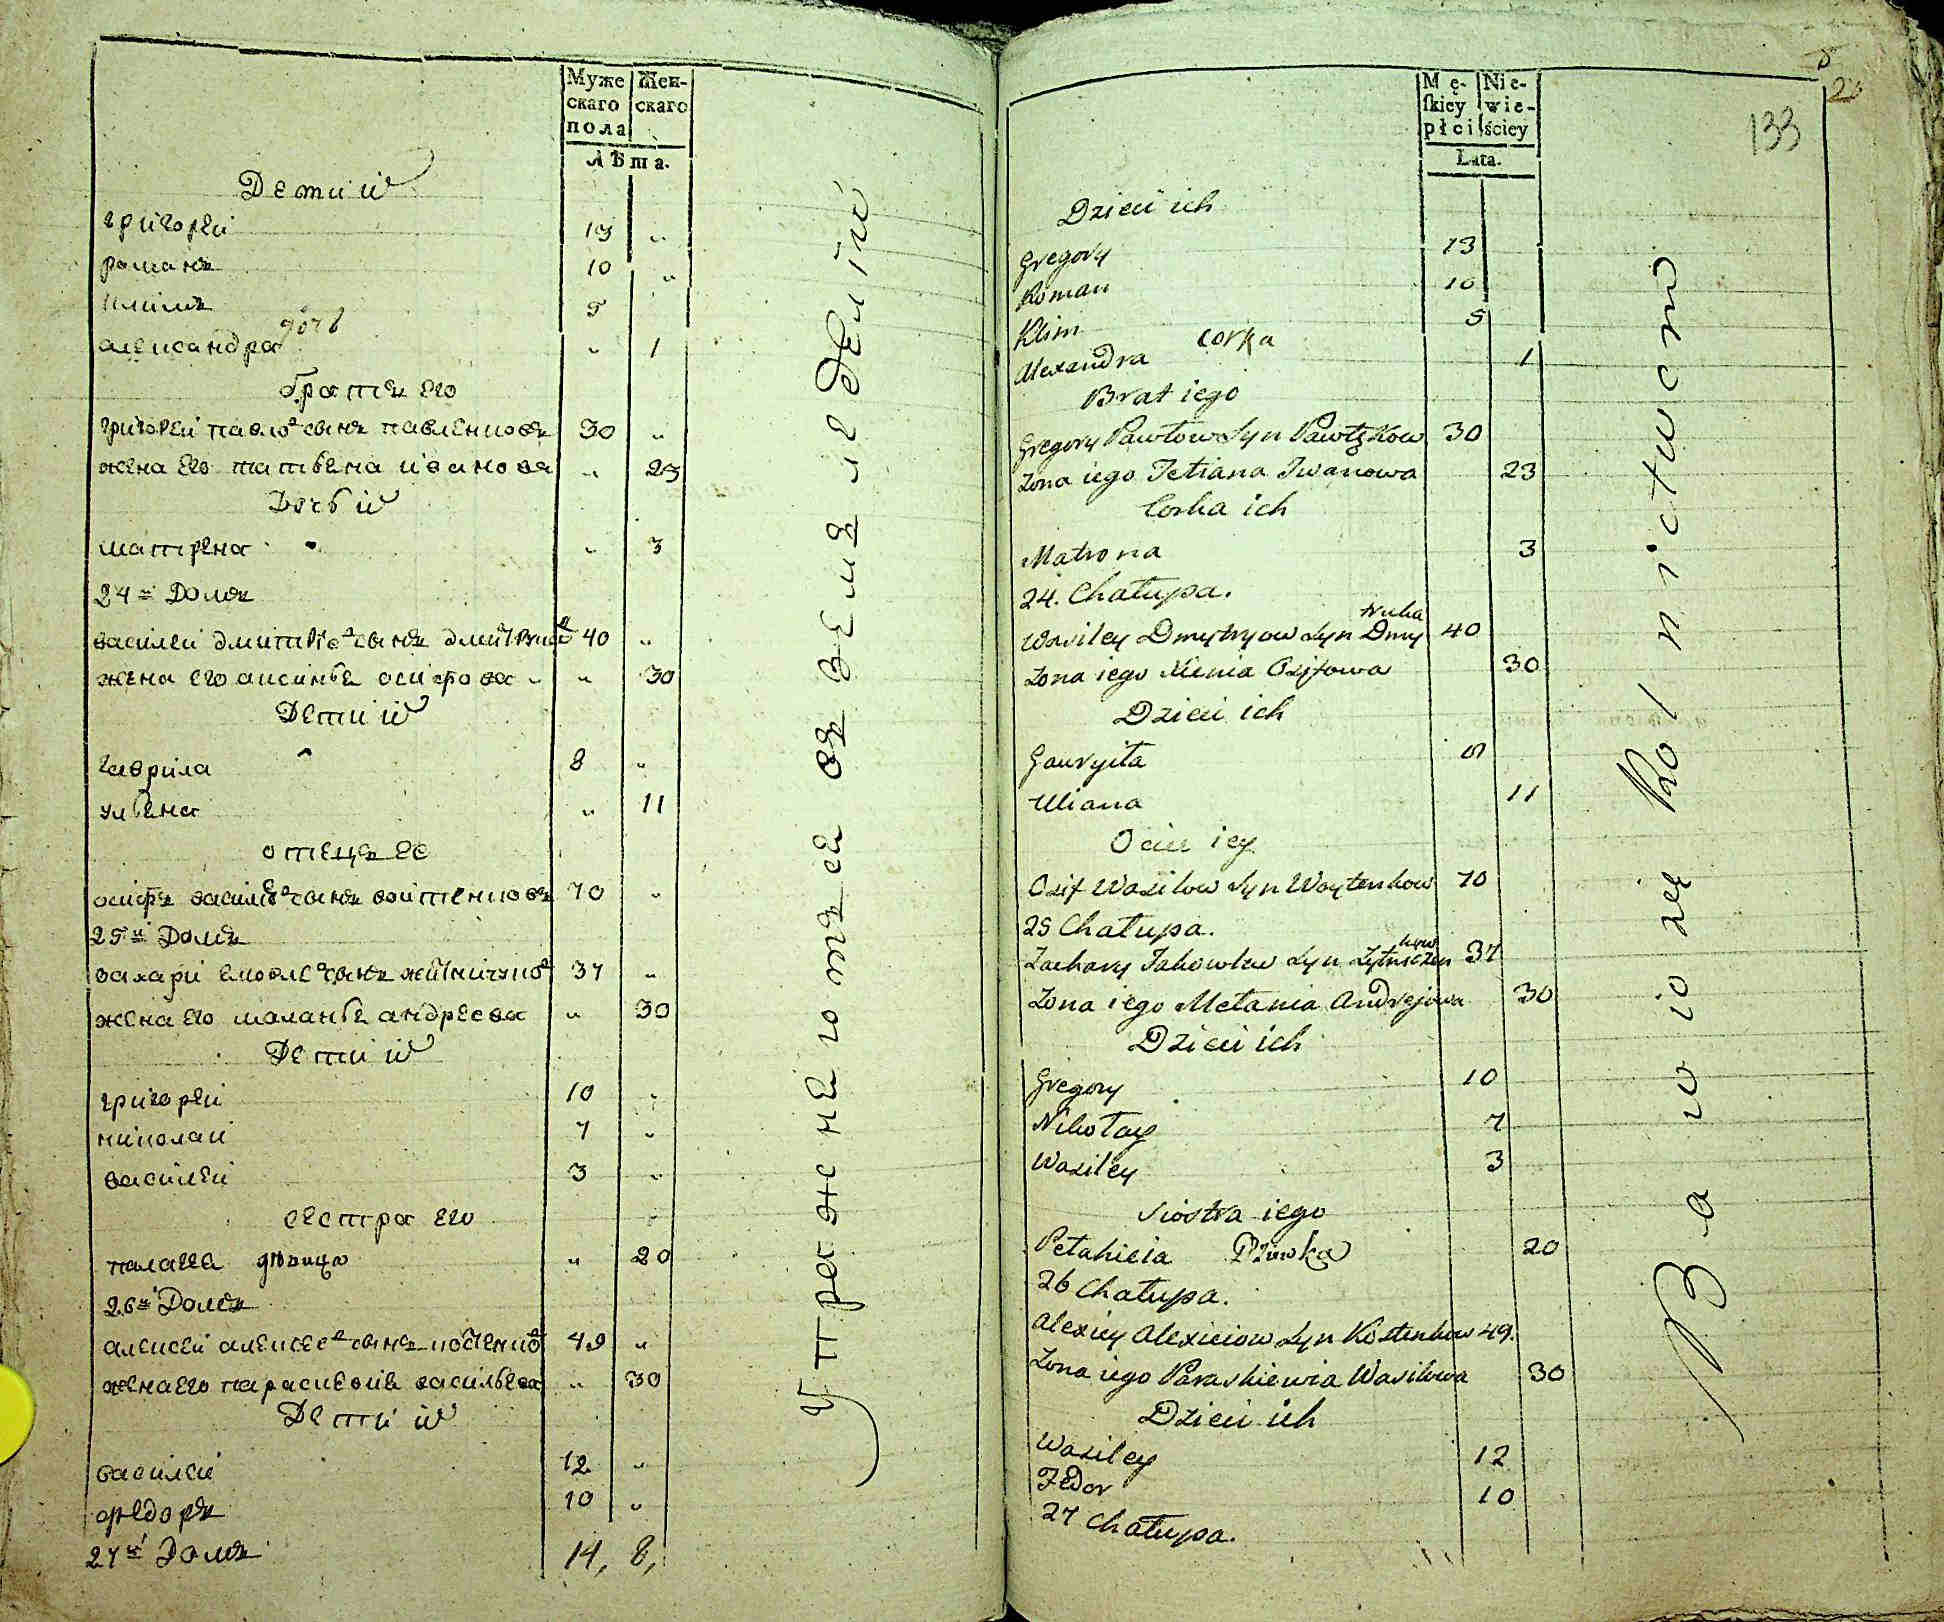 Муже Жен-
скаго скаго
пола
Лѣта.
Дети иˣ
григореи 13 „
романъ 10 „
климъ 5
дочь
александра „ 1
братъ его
григореи павло сынъ павленковъ 30 „
жена его татьяна иванова „ 23
Дочь иˣ
матрена „ 3
24й Домъ
василеи дмитрие сынъ 40 „
жена его аксинья осифова „ 30
Дети иˣ
гаврила 8 „
ульяна „ 11
отецъ ее
осифъ василье сынъ воитенковъ 70 „
25й Домъ
захари яковле сынъ 37 „
жена его маланья андреева „ 30
Дети иˣ
григореи 10 „
николаи 7 „
василеи 3 „
сестра его
палагея девица „ 20
26й Домъ
алексеи алексее сынъ 49 „
жена его парасковия васильева „ 30
Дети иˣ
василеи 12 „
федоръ 10 „
27й Домъ
14, 8,
Упражнеютъся въ земледелие
Mę- Nie-
skiey wie-
płci ściey
Lata.
133
Dzieci ich
Gregory 13
Roman 10
Klim 5
corka
Alexandra 1
Brat iego
Gregory Pawłow Syn Pawłękow 30
Zona iego Tetiana Iwanowa 23
Corka ich
Matrona 3
24. Chałupa.
truka
Wasiley Dmytryow Syn Dmy 40
Zona iego Xienia Osifowa 30
Dzieci ich
Gawryiła 8
Uliana 11
Ociec iey
Osif Wasilow Syn Woytenkow 70
25 Chałupa.
kow
Zachary Jakowlew Syn Zytniczen 37
Zona iego Mełania Andrejowa 30
Dzieci ich
Gregory 10
Nikołay 7
Wasiley 3
Siostra iego
Pełahieia Dziwka 20
26 Chałupa.
Alexiey Alexieiow Syn Kostenkow 49.
Zona iego Paraskiewia Wasilowa 30
Dzieci ich
Wasiley 12
Fedor 10
27 Chałupa.
Bawio się Rolnictwem